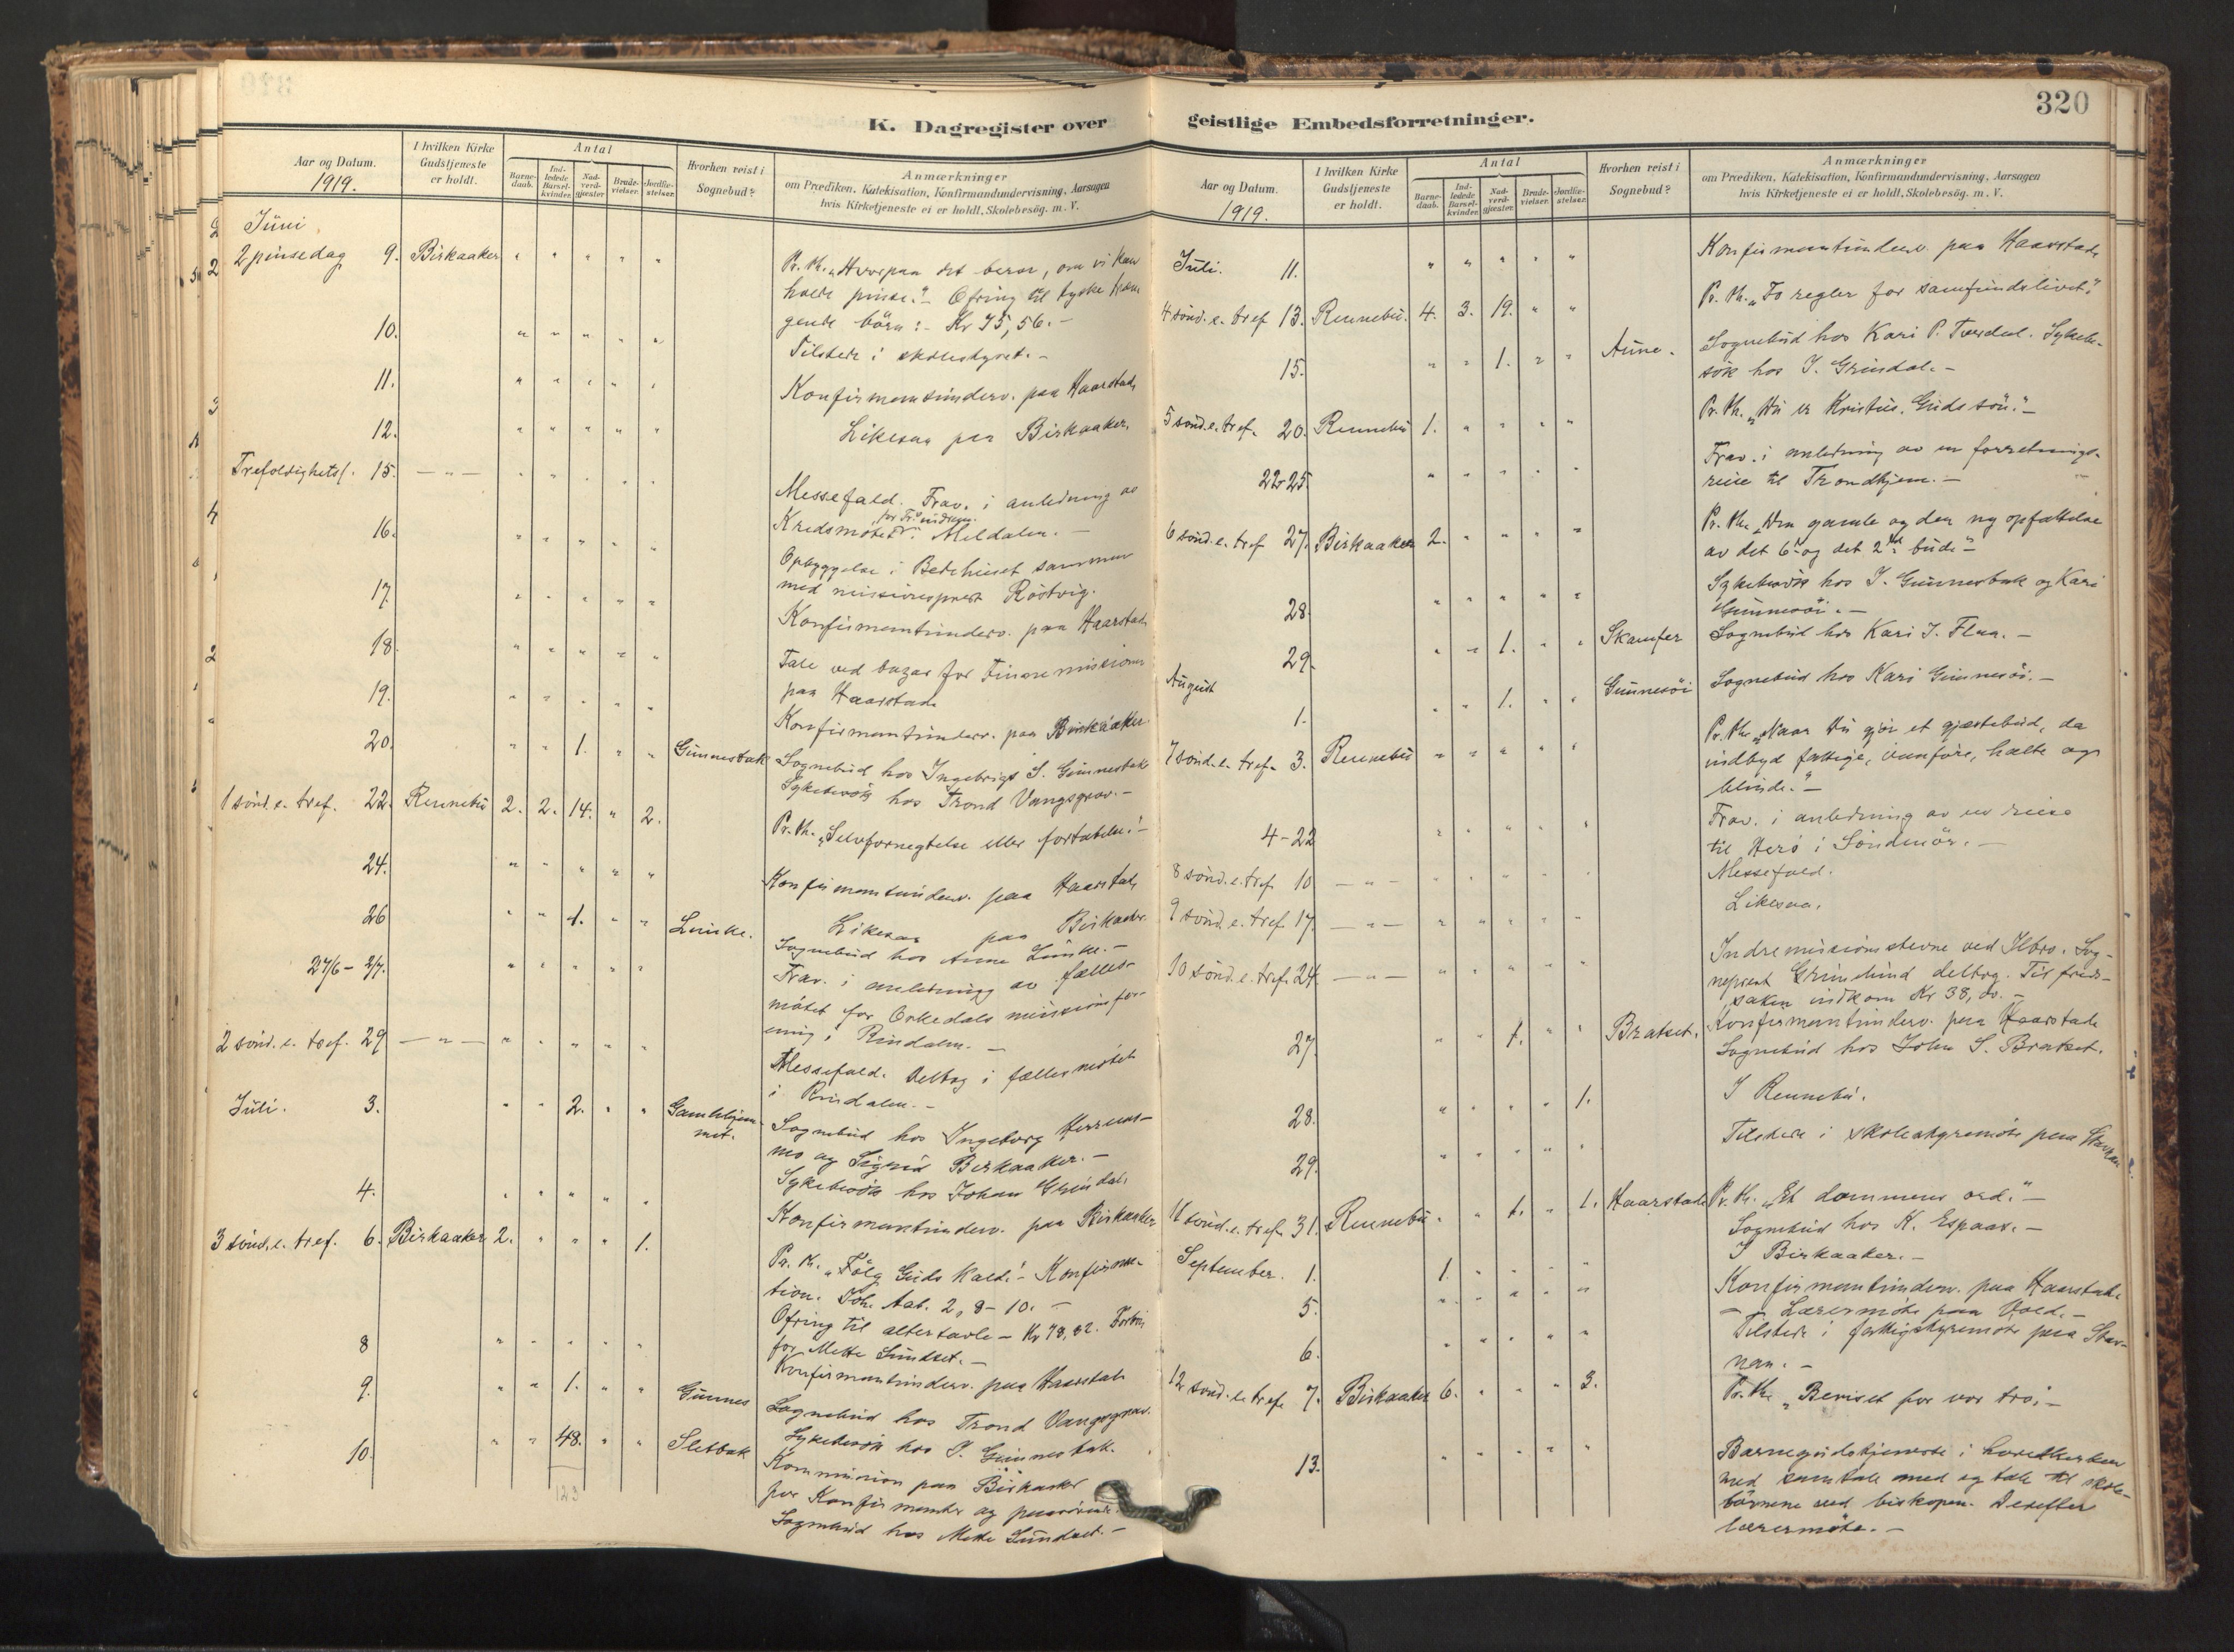 320
K. Dagregister over geistlige Embedsforretninger.
Aar og Datum.
1919.
I hvilken Kirke
Gudstjeneste
er holdt.
Antal
Barne-
daab.
Ind-
ledede
Barsel-
kvinder.
Nad-
verd-
gjæster.
Brude-
vielser.
Jordfæ-
stelser.
Hvorhen reist i
Sognebud?
Anmærkninger
om Prædiken, Katekisation, Konfirmandundervisning, Aarsagen
hvis Kirketjeneste ei er holdt, Skolebesøg. m. V.
Juni
2 pinsedag 9. Birkaaker " " " " " Pr. th. „Hvorpaa det beror, om vi kan
holde pinse." Ofring til tyske træn
gende börn: - Kr 75,56. -
10. " " " " " Tilstede i skolestyret. -
11. " " " " " Konfirmantunderv. paa Haarstad
12. " " " " " Likesaa paa Birkaaker.
Trefoldighetsf. 15. — " — " " " " " Messefald. Frav. i anledning av
Kredsmötet i Meldalen. -
16. " " " " " Opbyggelse i Bedehuset sammen
med missionsprest Röstvig.
17. " " " " " Konfirmantunderv. paa Haarstad
18. " " " " " Tale ved bazar for Finnemissionen
paa Haarstad
19. " " " " " Konfirmantunderv. paa Birkaaker
20. " " 1. " " Gunnesbak Sognebud hos Ingebrigt S. Gunnesbak
Sykebesök hos Trond Vangsgrav. -
1 sönd. e. tref. 22. Rennebu 2. 2. 14. " 2. Pr. th. „Selvfornegtelse eller fortabelse." -
24. " " " " " Konfirmantunderv. paa Haarstad
26 " " 1. " " Lunke. Likesaa paa Birkaaker.
Sognebud hos Anne Lunke. -
27/6 - 2/7. " " " " " Frav. i anledning av fælles-
mötet for Orkedals missionsfor-
ening i Rindalen. -
2 sönd. e. tref. 29 — " — " " " " " Messefald. Deltog i fællesmötet
i Rindalen. -
Juli. 3. " " 2. " " Gamlehjem-
met. Sognebud hos Ingeborg Herrem-
mo og Sigrid Birkaaker. -
Sykebesök hos Johan Grindal.
4. " " " " " Konfirmantunderv. paa Birkaaker
3 sönd. e. tref. 6. Birkaaker 2. " " " 1. Pr. th. „Fölg Guds kald." - Konfirma-
tion. Joh. Aab. 2, 8-10. -
Ofring til altertavle - Kr 78,82.
for Mette Sundset. -
8 " " " " " Konfirmantunderv. paa Haarstad
9. " " 1. " " Gunnes Sognebud hos Trond Vangsgrav.
Sykebesök hos I. Gunnesbak.
10. " " 48. " " Sletbak Kommunion paa Birkaaker
for Konfirmanter og paarörende.
Sognebud hos Mette Sundset. -
123
Aar og Datum.
1919.
I hvilken Kirke
Gudstjeneste
er holdt.
Antal
Barne-
daab.
Ind-
ledede
Barsel-
kvinder.
Nad-
verd-
gjæster.
Brude-
vielser.
Jordfæ-
stelser.
Hvorhen reist i
Sognebud?
Anmærkninger
om Prædiken, Katekisation, Konfirmandundervisning, Aarsagen
hvis Kirketjeneste ei er holdt, Skolebesøg. m. V.
Juli. 11. " " " " " Konfirmantunderv. paa Haarstad
4 sönd. e. tref 13. Rennebu. 4. 3. 19. " " Pr. th. „To regler for samfundslivet."
15. " " 1. " " Aune. Sognebud hos Kari P. Tverdal. Sykebe-
sök hos J. Grindal. -
5 sönd. e. tref. 20. Rennebu 1. " " " " Pr. th. „Du er Kristus, Guds sön." -
22-25. " " " " " Frav. i anledning av en forretnings-
reise til Trondhjem. -
6 sönd. e. tref 27. Birkaaker 2. " " " " Pr. th. „Den gamle og den ny opfattelse
av det 6te og det 2det bud." -
28. " " " " " Sykebesök hos I. Gunnesbak og Kari
Gunnesöi. -
29. " " 1. " " Skamfer Sognebud hos Kari J. Flaa. -
August
1. " " 1. " " Gunnesöi Sognebud hos Kari Gunnesöi. -
7 sönd. e. tref. 3. Rennebu " " " " " Pr. th. „Naar du gjör et gjæstebud, da
indbyd fattige, vanföre, halte og
blinde." -
4-22 " " " " " Frav. i anledning av en reise
til Herö i Söndmör. -
8 sönd. e. tref. 10 — " — " " " " " Messefald.
9 sönd. e. tref. 17. — " — " " " " " Likesaa.
10 sönd. e. tref. 24 — " — " " " " " Indremissionsstevne ved Ilbro. Sog-
neprest Grimelund deltog. Til freds-
saken indkom Kr 38,
27. " " 1. " " Bratset. Konfirmantunderv. paa Haarstad
Sognebud hos John S. Bratset.
28. " " " " 1. I Rennebu.
29. " " " " " Tilstede i skolestyremöte paa Stavnan
11 sönd. e. tref. 31. Rennebu " " 1. " 1. Haarstad Pr. th. „Et dommens ord." -
Sognebud hos K. Espaas. -
I Birkaaker. -
September. 1. 1. " " " " Konfirmantunderv. paa Haarstad
5. " " " " " — Lærermöte paa Vold. -
6. " " " " " Tilstede i fattigstyremöte paa Stav-
nan. -
12 sönd. e. tref. 7. Birkaaker 6. " " " 3. Pr. th. „Beviset for vor tro." -
13. " " " " " Barnegudstjeneste i hovedkirken
med samtale med og tale til skole-
börnene ved biskopen. Derefter
lærermöte. -